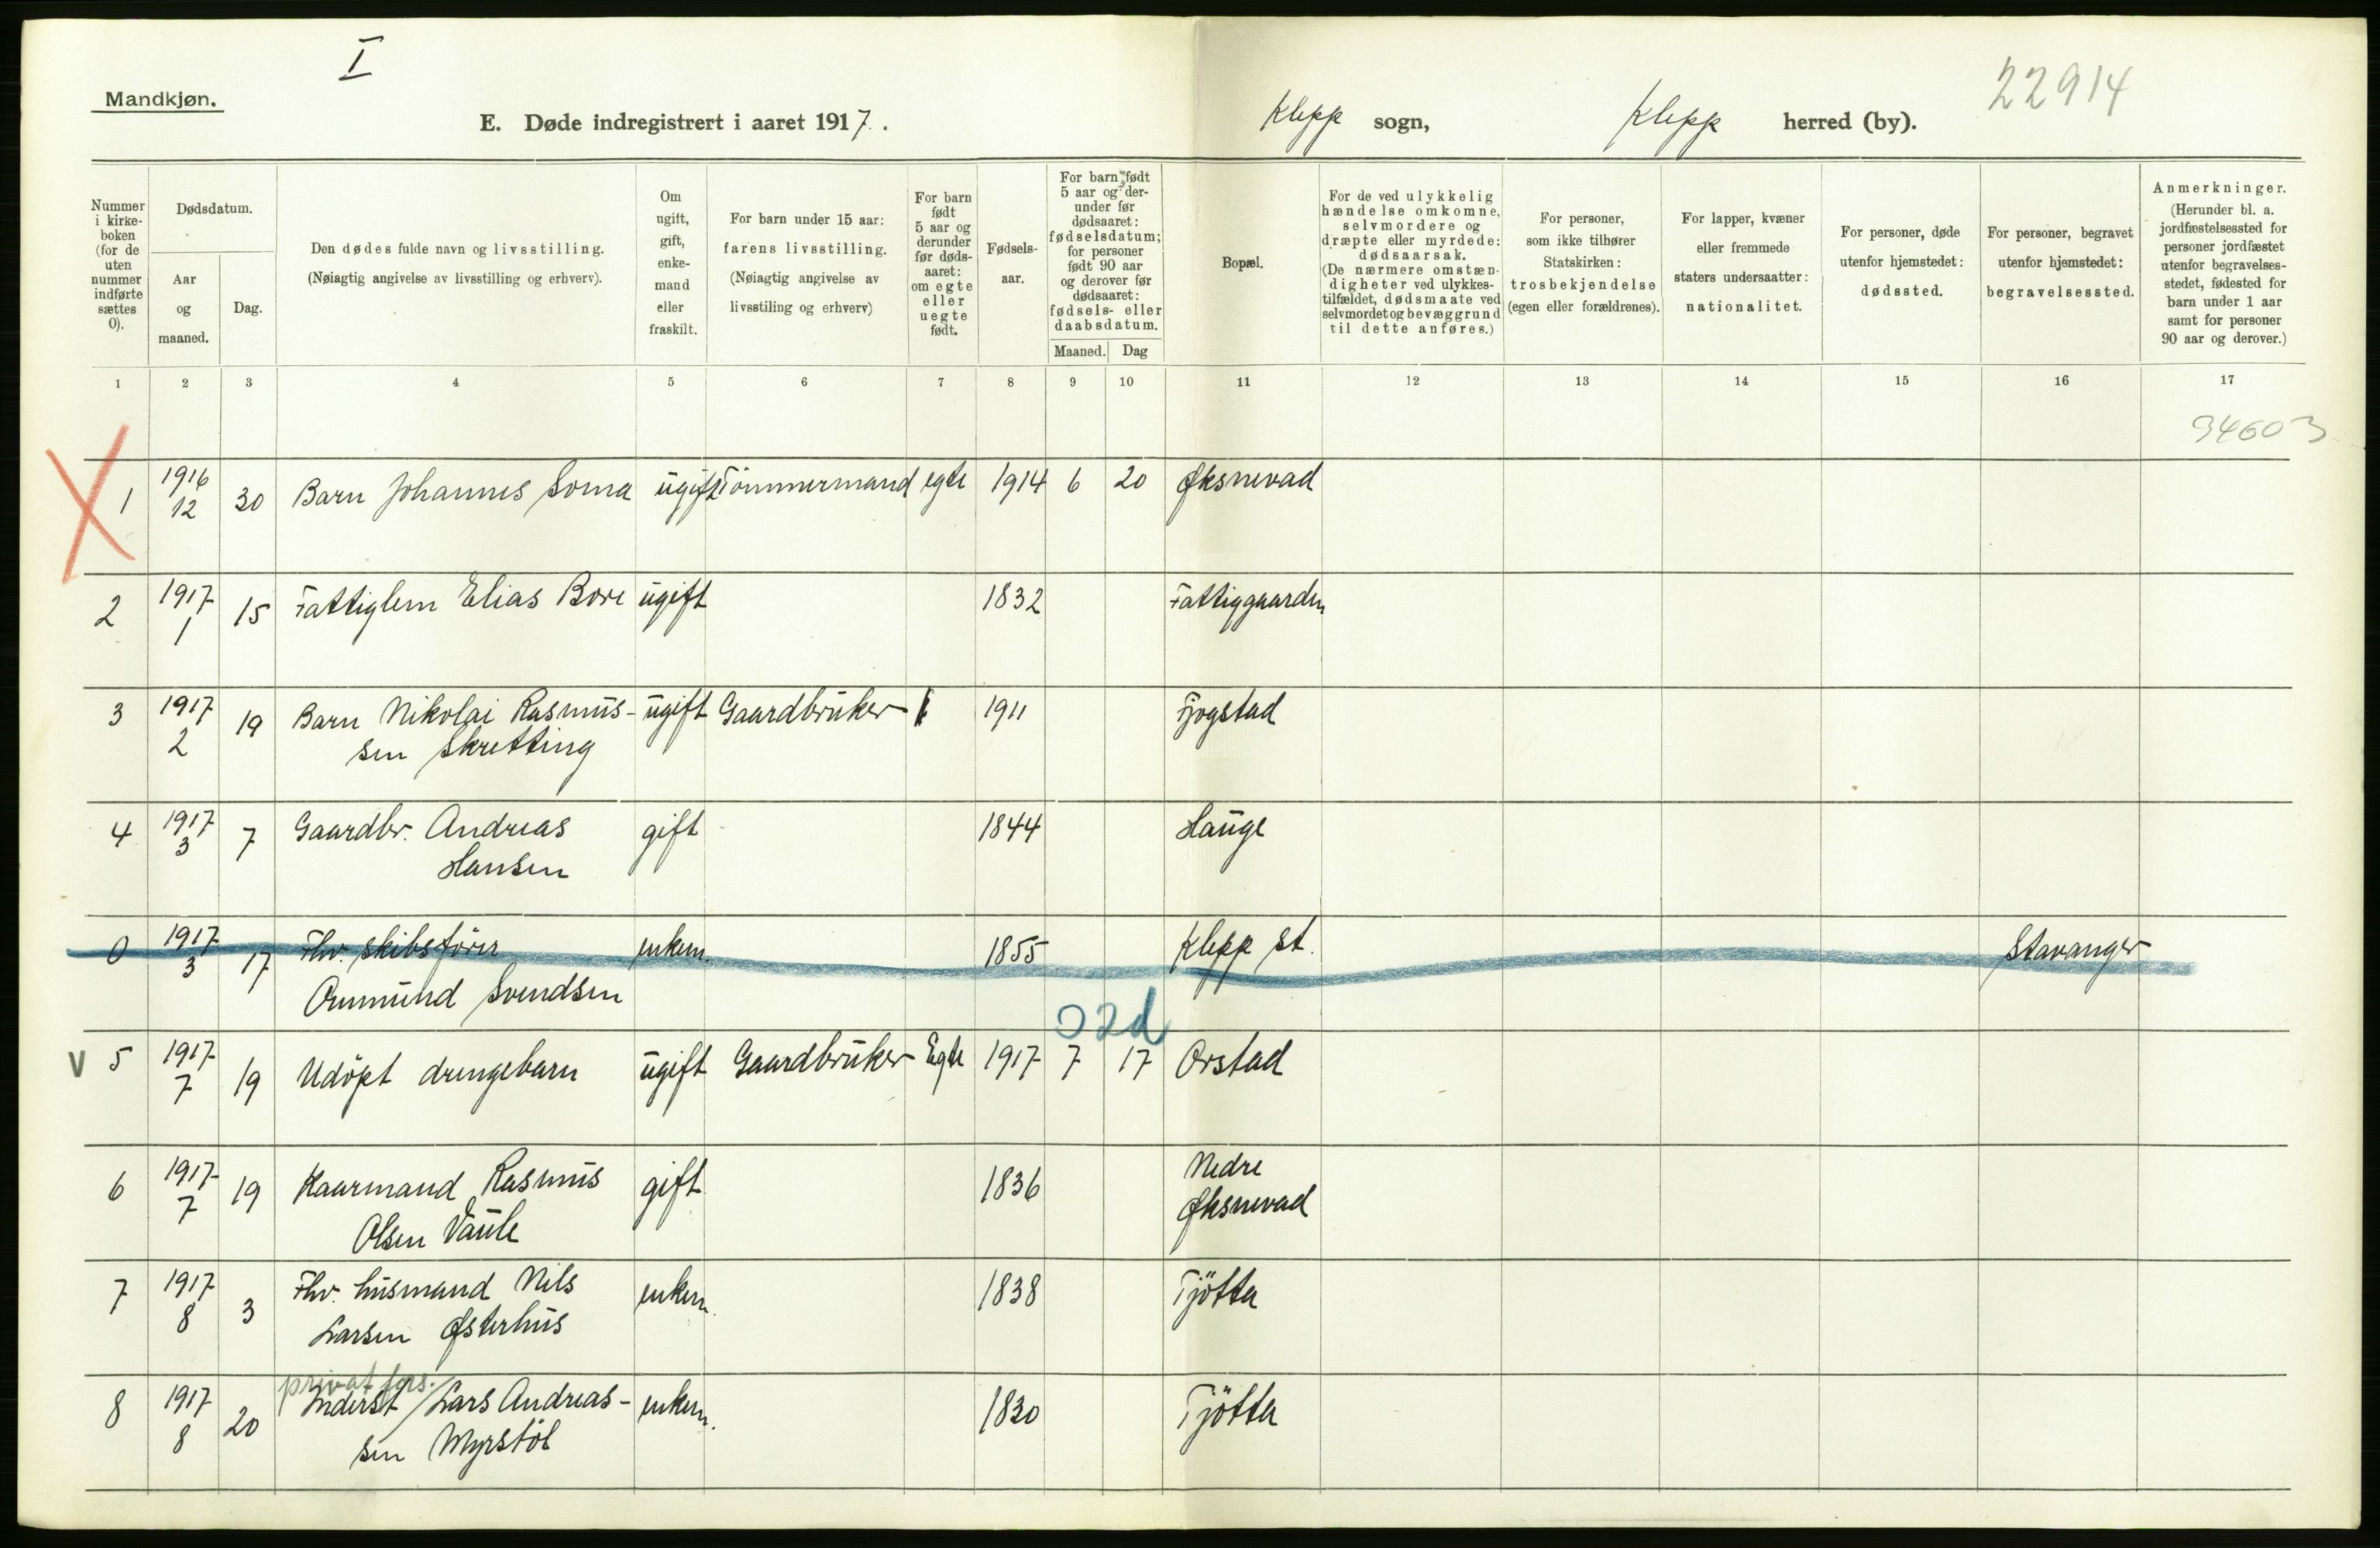 I
Mandkjøn.
E. Døde indregistrert i aaret 1917.
Klepp sogn,
Klepp herred (by).
22914
Nummer
i kirke-
boken
(for de
uten
nummer
indførte
sættes
0).
Dødsdatum.
Aar
og
maaned.
Dag.
Den dødes fulde navn og livsstilling.
(Nøiagtig angivelse av livsstilling og erhverv).
Om
ugift,
gift,
enke-
mand
eller
fraskilt.
For barn under 15 aar:
farens livsstilling.
(Nøiagtig angivelse av
livsstiling og erhverv)
For barn
født
5 aar og
derunder
før døds-
aaret:
om egte
eller
uegte
født.
Fødsels-
aar.
For barn født
5 aar og der-
under før
dødsaaret:
fødselsdatum;
for personer
født 90 aar
og derover før
dødsaaret:
fødsels- eller
daabsdatum.
Maaned. Dag
Bopæl.
For de ved ulykkelig
hændelse omkomne,
selvmordere og
dræpte eller myrdede:
dødsaarsak.
(De nærmere omstæn-
digheter ved ulykkes-
tilfældet, dødsmaate ved
selvmordet og bevæggrund
til dette anføres.)
For personer,
som ikke tilhører
Statskirken:
trosbekjendelse
(egen eller forældrenes).
For lapper, kvæner
eller fremmede
staters undersaatter:
nationalitet.
For personer, døde
utenfor hjemstedet:
dødssted.
For personer, begravet
utenfor hjemstedet:
begravelsessted.
Anmerkninger.
(Herunder bl. a.
jordfæstelsessted for
personer jordfæstet
utenfor begravelses-
stedet, fødested for
barn under 1 aar
samt for personer
90 aar og derover.)
1 2 3 4 5 6 7 8 9 10 11 12 13 14 15 16 17
94603
1916
1 12 30 Barn Johannes Soma ugift Tömmermand egte 1914 6 20 Øksnevad
1917
2 1 15 Fattiglem Elias Bore ugift 1832 Fattiggaarden
1917
3 2 19 Barn Nikolai Rasmus- ugift Gaardbruker 1911 Fjogstad
sen Skretting
1917
4 3 7 Gaardbr. Andreas gift 1844 Hauge
Hansen
1917
0 3 17 Fhv. skibsförer enkem. 1855 Klepp st. Stavanger
Ommund Svendsen
02d
1917
V 5 7 19 Udöpt drengebarn ugift Gaardbruker Egte 1917 7 17 Orstad
1917 Nedre
6 7 19 Kaarmand Rasmus gift 1836 Øksnevad
Olsen Vaule
1917
7 8 3 Fhv. husmand Nils enkem. 1838 Tjötta
Larsen Østerhus
privat fors.
1917
8 8 20 Inderst Lars Andreas- enkem. 1830 Tjötta
sen Myrstöl